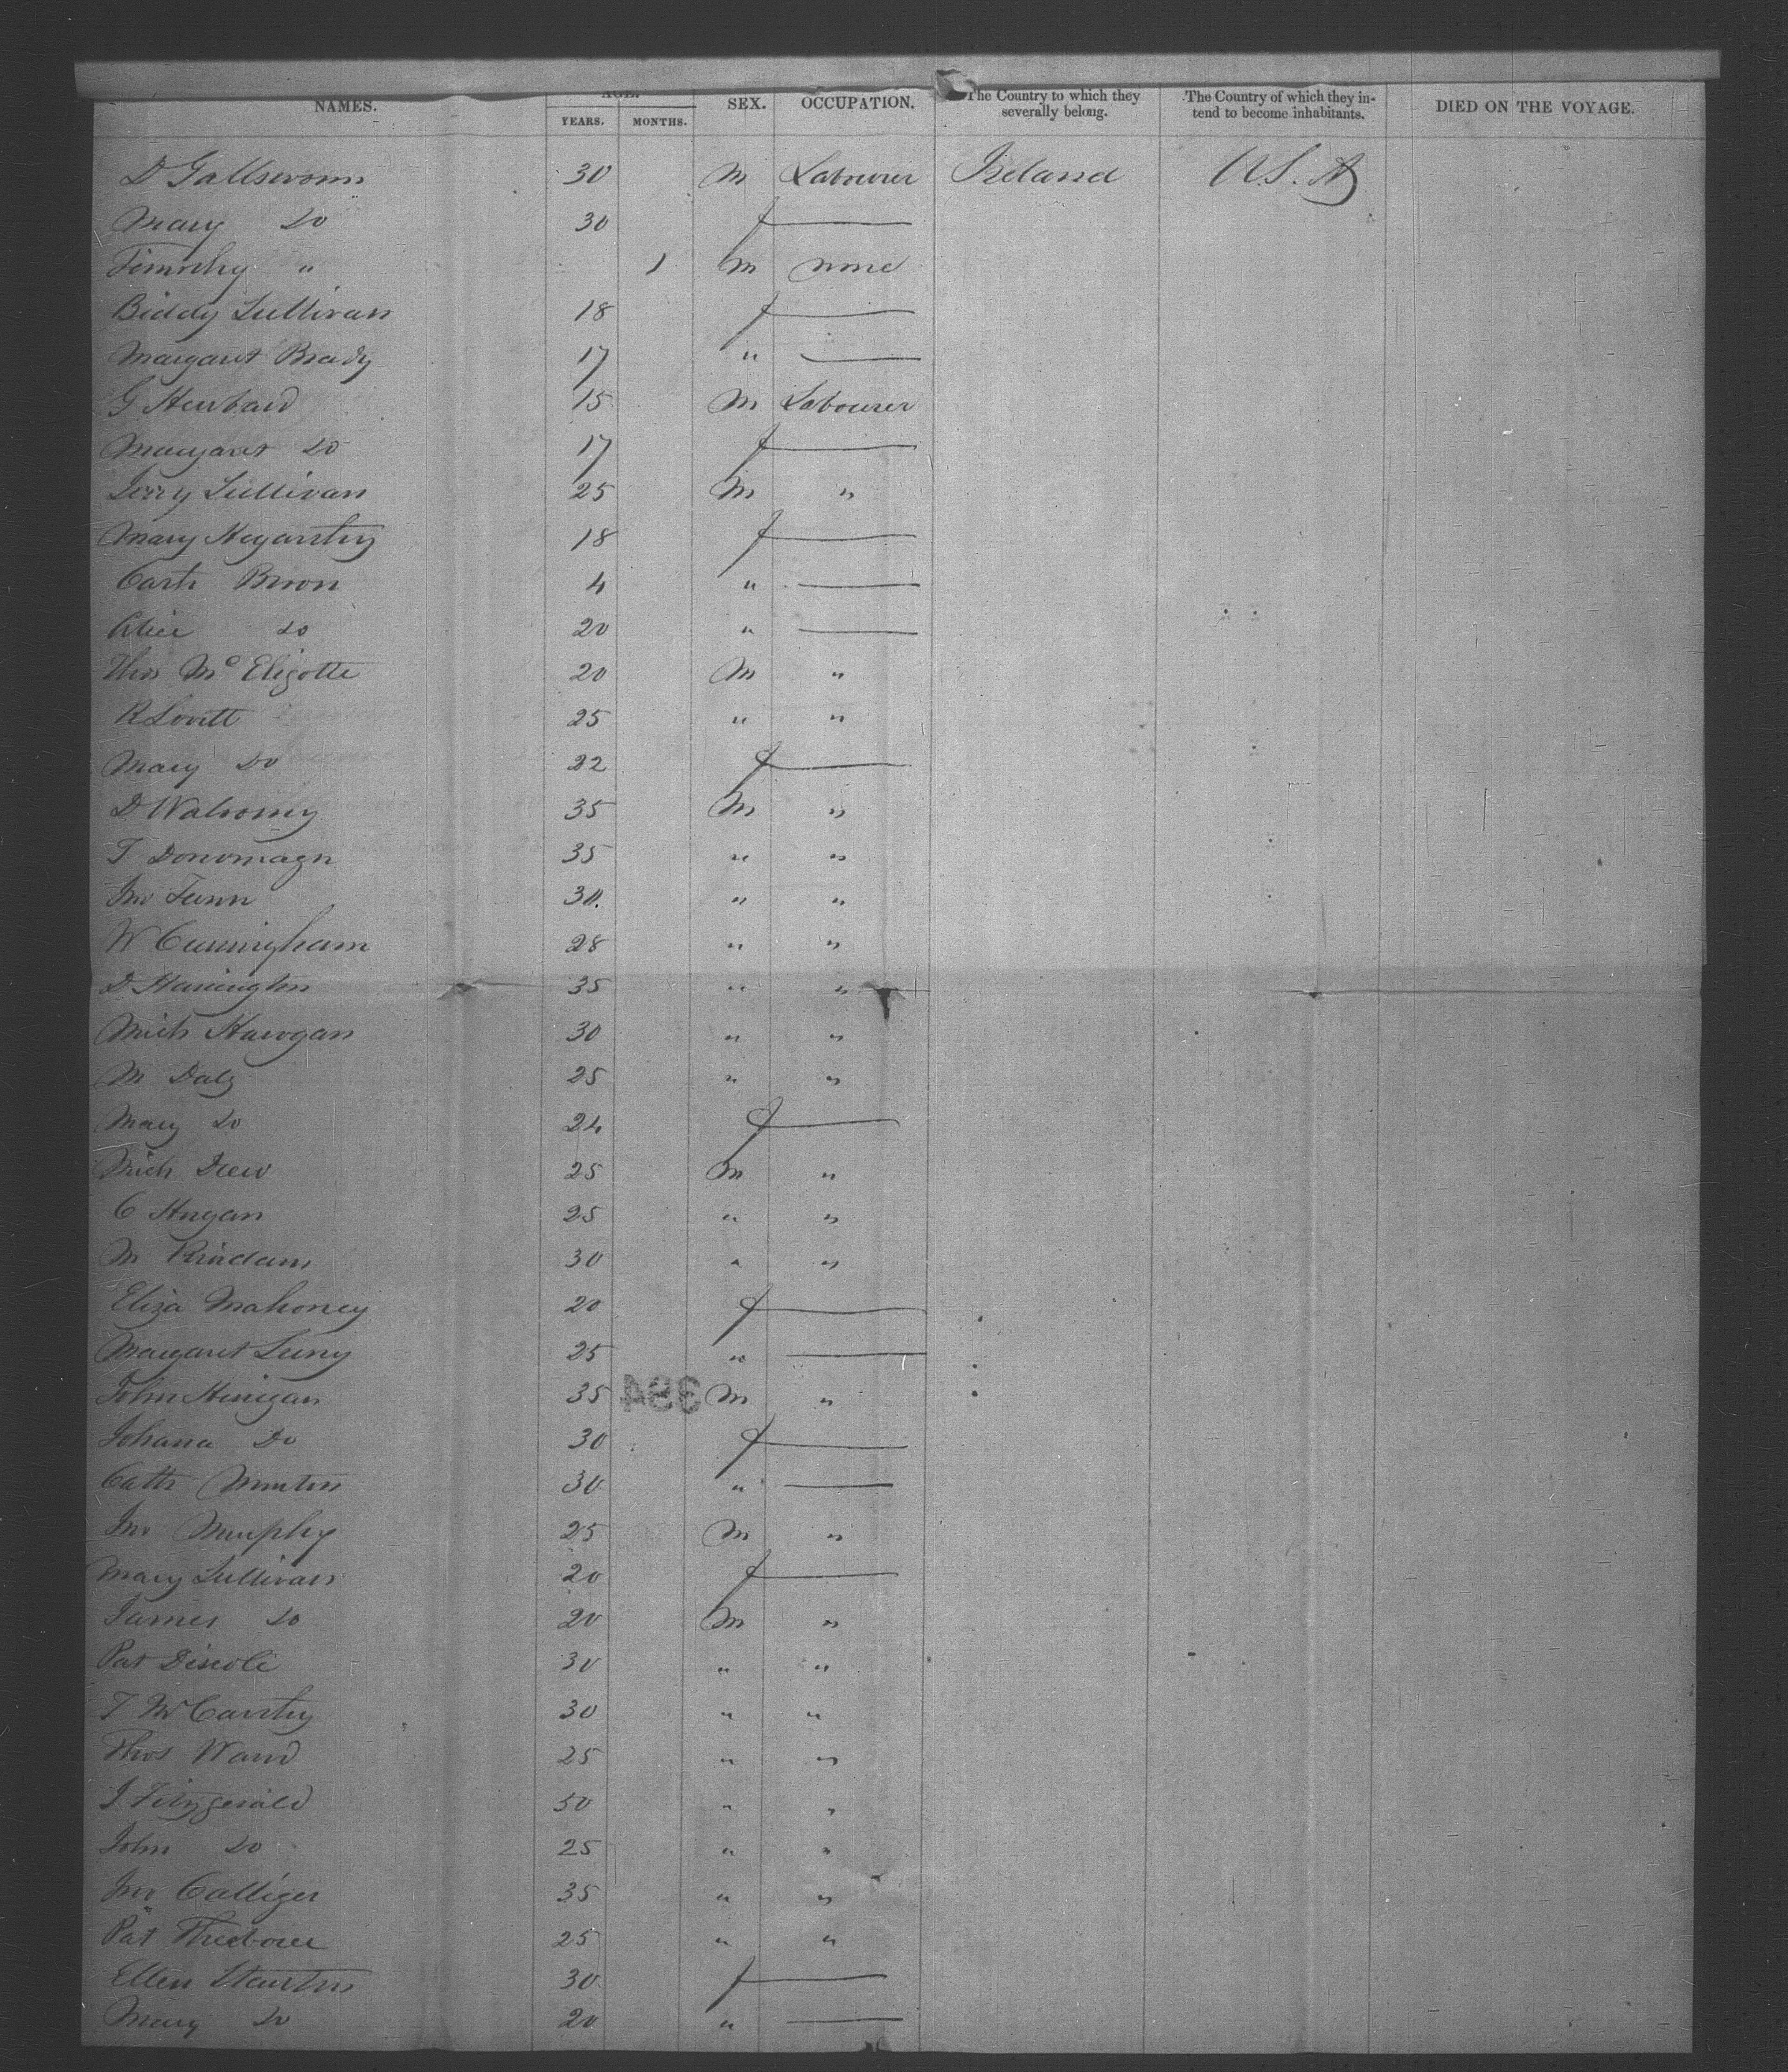 NAMES. AGE. YEARS. MONTHS. SEX. OCCUPATION. The Country to which they severally belong. The Country of which they intend to become inhabitants. DIED ON THE VOYAGE.
D 30 M Labourer Ireland U.S.A
Mary Do 30 f —
Timothy " 1 M none
Biddy Sullivan 18 f —
Margaret Brady 17 " —
G 15 M Labourer
Margaret Do 17 f —
Jerry Sullivan 25 M "
Mary Hegarthy 18 f —
Cath 4 " —
Alice Do 20 " —
Thos Mc Eligotte 20 M "
R Lovitt 25 " "
Mary Do 22 f —
D Wahoney 35 M "
T Donomagn 35 " "
Jno Tunn 30. " "
W Cunningham 28 " "
D Harrington 35 " "
Mich 30 " "
M Daly 25 " "
Mary Do 24 f —
Mich Drew 25 M "
C Hogan 25 " "
M Rindam 30 " "
Eliza Mahoney 20 f —
Margaret 25 " —
John Hinigan 35 394 M "
Johana Do 30 f —
Cath 30 " —
Jno Murphy 25 M "
Mary Sullivan 20 f —
James Do 20 M "
Pat 30 " "
T McCarthy 30 " "
Thos Ward 25 " "
J Fitzgerald 50 " "
John Do 25 " "
Jno Calliger 35 " "
Pat 25 " "
Ellen 30 f —
Mary Do 20 " —